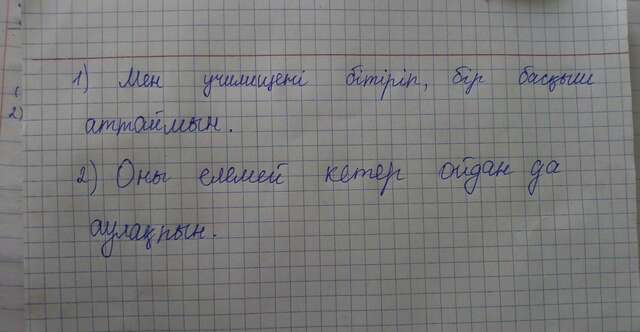 1) Мен училищені бітіріп, бір басқыш
аттаймын.
2) Оны елемей кетер ойдан да
аулақпын.
2)